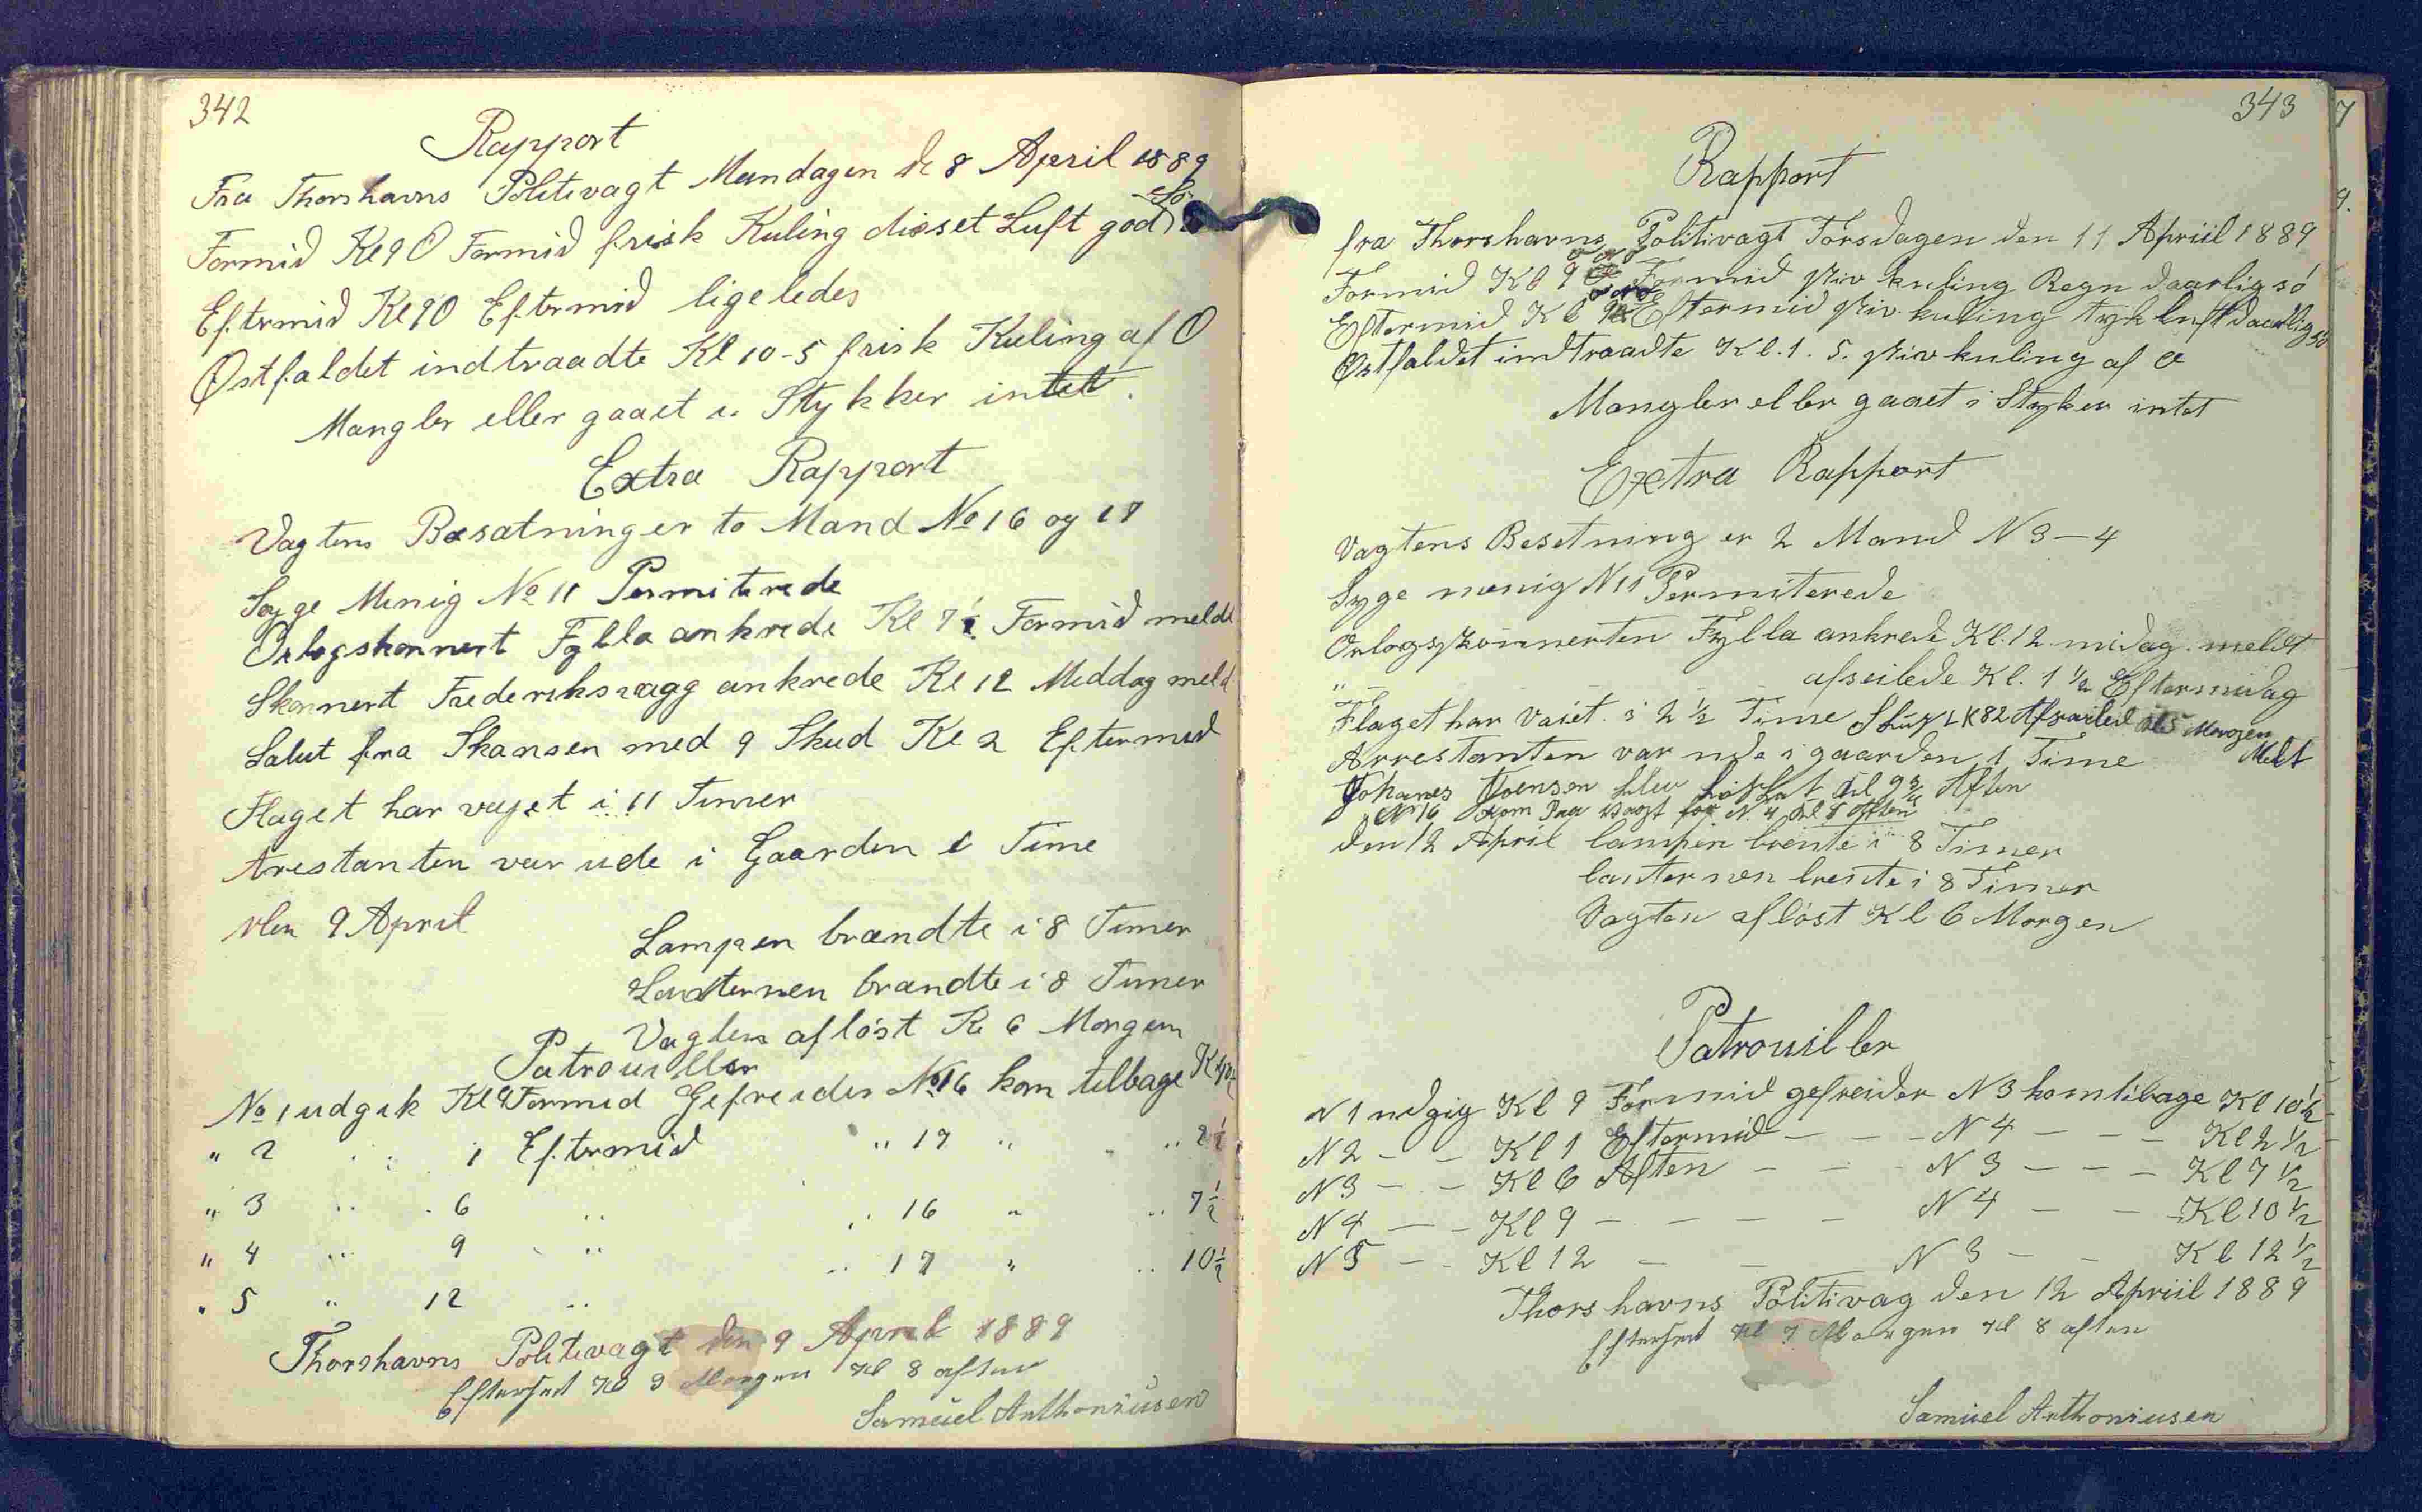 342
Rapport
Fra Thorshavns Politivagt Mandagen d 8 April 1889
Formid Kl 9 O Formid frisk Kuling diset Luft god Sö
Eftermid Kl 9 O Eftermid ligeledes
Østfaldet indtraadte Kl 10-5 frisk Kuling af O
Mangler eller gaaet i Stykker intet.
Extra Rapport
Vagtens Besatning er to Mand No 16 og 17
Syge Menig No 11 Permiterede
Orlogskonnert Fylla ankrede Kl 7½ Formid meldt
Skonnert Frederiksvagg ankrede Kl 12 Middag meld
Salut fra Skansen med 9 Skud Kl 2 Eftermid
Flaget har vajet i 11 Timer
Arestanten var ude i Gaarden 1 Time
den 9 April
Lampen brændte i 8 Timer
Lanternen brændte i 8 Timer
Vagten aflöst Kl 6 Morgen
Patrouiller
No 1 udgik Kl 9 Formid Gefreider No 16 kom tilbage Kl 10½
" 2 " " 1 Eftermid " 17 " " 2½
" 3 " " 6 " " 16 " " 7½
" 4 " 9 " " 17 " " 10½
" 5 " 12 "
Thorshavns Politivagt den 9 April 1889
Efterset Kl 9 Morgen Kl 8 aften
Samuel Anthoniusen
343
Rapport
fra Thorshavns Politivagt Torsdagen den 11 Apriil 1889
Formid Kl 9 Formid stiv kuling Regn daarlig sö
Eftermid Kl 9 Eftermid stiv kuling tyk luft daarlig sö
Østfaldet indtraadte Kl. 1. 5. stiv kuling af O
Mangler eller gaaet i Styker intet
Extra Rapport
Vagtens Besetning er 2 Mand N 3-4
Syge menig N 11 Permiterede
Orlogsskonnerten Fylla ankrede Kl. 12 midag. meldt
" — — afseilede Kl. 1 ½ Eftermidag
Flaget har vaiet i 2 ½ Time LK 82 Afseiled Kl 5 Morgen
Arrestanten var ude i gaarden 1 Time Meldt
Johanes Joensen blev Kl 9¾ Aften
No 16 kom paa vagt for N. 4 Kl 8 Aften
den 12 April lampen brente i 8 Timer
lanternen brente i 8 Timer
Vagten aflöst Kl 6 Morgen
Patrouiller
N 1 udgig Kl 9 Formid gefreider N 3 kom tilbage Kl 10½
N 2 — — Kl 1 Eftermid — — — N 4 — — — Kl 2 ½
N 3 — — Kl 6 Aften — — — N 3 — — — Kl 7 ½
N 4 — — Kl 9 — — — — N 4 — — Kl 10 ½
N 5 — — Kl 12 — — N 3 — — Kl 12 ½
Thorshavns Politivag den 12 Apriil 1889
Efterset Kl 7 Morgen Kl 8 aften
Samuel Anthoniusen
7
9.